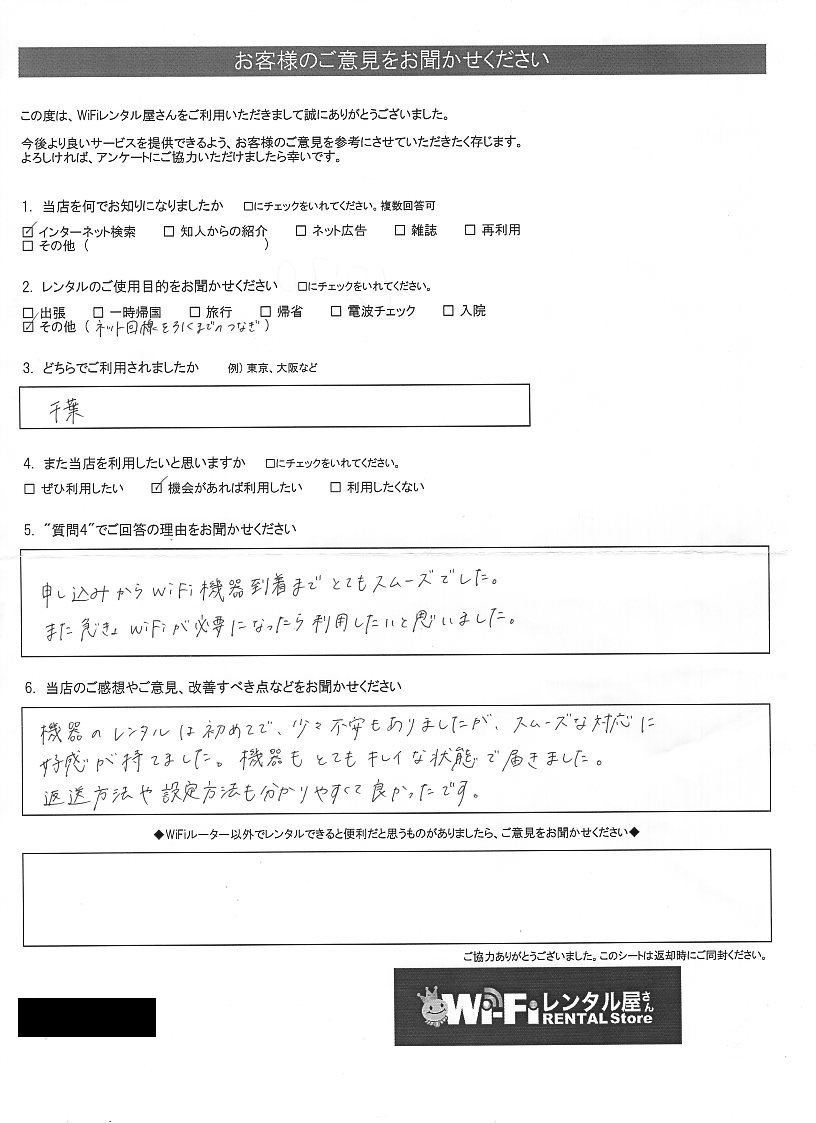 お客様のご意見をお聞かせください
この度は、WiFiレンタル屋さんをご利用いただきまして誠にありがとうございました。
今後より良いサービスを提供できるよう、お客様のご意見を参考にさせていただきたく存じます。
よろしければ、アンケートにご協力いただけましたら幸いです。
1. 当店を何でお知りになりましたか □にチェックをいれてください。複数回答可
☑インターネット検索 □知人からの紹介 □ネット広告 □雑誌 □再利用
□その他（ ）
2. レンタルのご使用目的をお聞かせください □にチェックをいれてください。
□出張 □一時帰国 □旅行 □帰省 □電波チェック □入院
☑その他（ネット回線を引くまでのつなぎ）
3. どちらでご利用されましたか 例）東京、大阪など
千葉
4. また当店を利用したいと思いますか □にチェックをいれてください。
□ぜひ利用したい ☑機会があれば利用したい □利用したくない
5. "質問4"でご回答の理由をお聞かせください
申し込みからWiFi機器到着までとてもスムーズでした。
また急きょWiFiが必要になったら利用したいと思いました。
6. 当店のご感想やご意見、改善すべき点などをお聞かせください
機器のレンタルは初めてで、少々不安もありましたが、スムーズな対応に
好感が持てました。機器もとてもキレイな状態で届きました。
返送方法や設定方法も分かりやすくて良かったです。
◆WiFiルーター以外でレンタルできると便利だと思うものがありましたら、ご意見をお聞かせください◆
ご協力ありがとうございました。このシートは返却時にご同封ください。
Wi-Fiレンタル屋さん
RENTAL Store